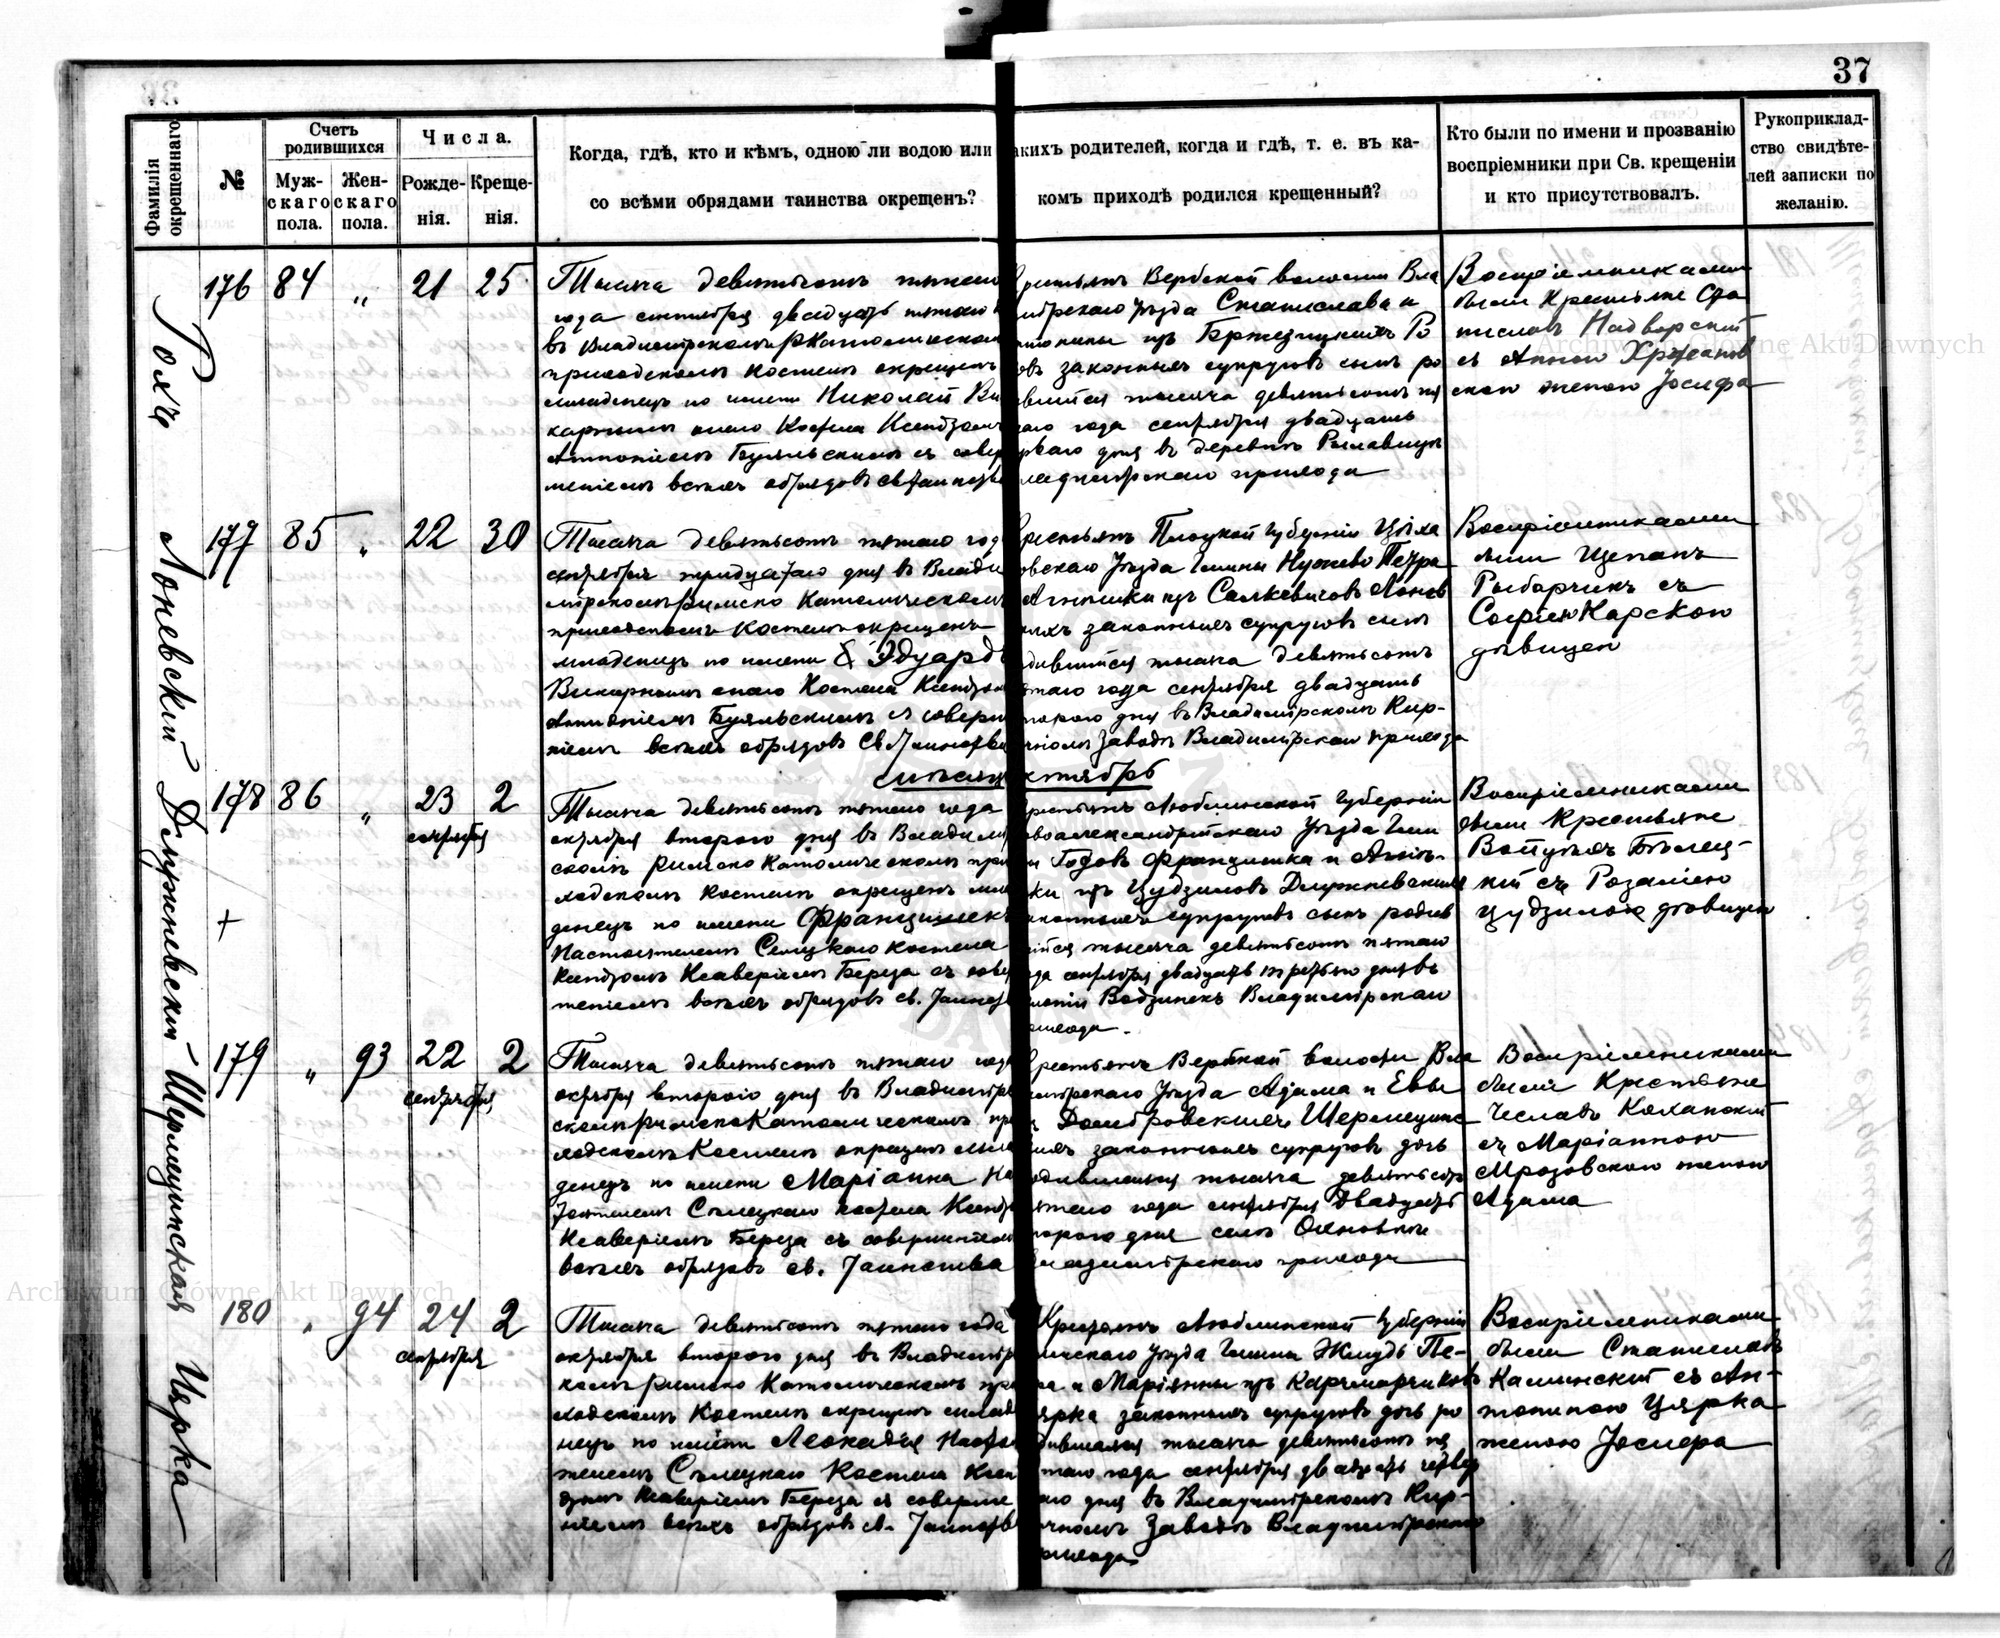 37
Фамилія окрещеннаго.
№
Счетъ родившихся
Мужскаго пола.
Женскаго пола.
Числа.
Рожденія.
Крещенія.
Когда, гдѣ, кто и кѣмъ, одною ли водою или
со всѣми обрядами таинства окрещенъ?
акихъ родителей, когда и гдѣ, т. е. въ ка-
комъ приходѣ родился крещенный?
Кто были по имени и прозванію
воспріемники при Св. крещеніи
и кто присутствовалъ.
Рукоприклад-
ство свидѣте-
лей записки по
желанію.
176 84 „ 21 25
Тысяча девятьсотъ пятаго
года сентября двадцать пятаго
въ Владимірскомъ РКатолическом
приходскомъ костелѣ окрещенъ
младенецъ по имени Николай Ви
карнымъ онаго Костела Ксендзомъ
Антоніемъ Буяльскимъ съ совер
шеніемъ всѣхъ обрядовъ св Таинства
Вербской волости Вла
мірскаго уѣзда Станислава и
изъ
законныхъ супруговъ сынъ ро
вшійся тысяча девятьсотъ пя
таго года сентября двадцать
рваго дня въ деревнѣ
ладимірскаго прихода
Воспріемниками
были Крестьяне Ста
ниславъ Надворскій
съ Анною
скою женою Іосифа
177 85 „ 22 30
Лоневскій
Тысяча девятьсотъ пятаго год
сентября тридцатаго дня въ Влади
мірскомъ Римско Католическомъ
приходскомъ Костелѣ окрещенъ
младенецъ по имени Эдуардъ
Викарнымъ онаго Костела Ксендзом
Антоніемъ Буяльскимъ съ соверш
ніемъ всѣхъ обрядовъ Св Таинства
рестьянъ Плоцкой Губерніи Цѣха
овскаго Уѣзда Гмины Петра
изъ Лонев
кихъ законныхъ супруговъ сынъ
дившійся тысяча девятьсотъ
таго года сентября двадцать
торого дня въ Владимірскомъ Кир-
ичномъ Заводѣ Владимірскаго прихода
Воспріемниками
были Щепанъ
Рыбарчикъ съ
Софіею Карскою
дѣвицею
мѣсяцъ октябрь
178 86 „ 23 сентября 2
Тысяча девятьсотъ пятаго года
октября второго дня въ Владимір
скомъ Римско Католическомъ при
ходскомъ Костелѣ окрещенъ мла
денецъ по имени Францишекъ
Настоятелемъ Селецкаго костела
Ксендзомъ Ксаверіемъ Береза съ совер
шеніемъ всѣхъ обрядовъ св. Таинства
рестьянъ Люблинской Губерніи
овоалександрійскаго Уѣзда Гми
ны Годовъ Францишка и Агнѣ-
жки изъ Цудзиловъ Длужневскихъ
аконныхъ супруговъ сынъ родив
шійся тысяча девятьсотъ пятаго
ода сентября двадцать третьяго дня въ
Владимірскаго
прихода.
Воспріемниками
были Крестьяне
Войтѣхъ Бѣлец-
кій съ Розаліею
Цудзилою дѣвицею
+
179 „ 93 22 сентября 2
Тысяча девятьсотъ пятаго года
октября второго дня въ Владимір
скомъ Римско Католическомъ при
ходскомъ Костелѣ окрещенъ мла
денецъ по имени Маріанна На
стоятелемъ Селецкаго костела Ксендз
Ксаверіемъ Береза съ совершеніемъ
всѣхъ обрядовъ св. Таинства
рестьянъ Вербской волости Вла
имірскаго Уѣзда Адама и Евы
Домбровскихъ Шермецинс
кихъ законныхъ супруговъ дочь
одившаяся тысяча девятьсотъ
ятаго года сентября двадцать
торого дня селѣ Охновкѣ
ладимірскаго прихода
Воспріемниками
были Крестьяне
Чеславъ Коханскій
съ Маріанною
Мрозовскою женою
Адама
180 „ 94 24 сентября 2
Тысяча девятьсотъ пятаго года
октября второго дня въ Владимір
комъ Римско Католическомъ при
ходскомъ Костелѣ окрещенъ младе
нецъ по имени Леокадія Настоя
телемъ Селецкаго Костела Ксен
дзомъ Ксаверіемъ Береза съ соверше
ніемъ всѣхъ обрядовъ св. Таинства
Крестьянъ Люблинской Губерніи
Уѣзда Гмины Жмудь Пе-
тра и Маріянны изъ Карчмарчиковъ
Цярка законныхъ супруговъ дочь ро
дившаяся тысяча девятьсотъ пя
таго года сентября двадцать четвер
таго дня въ Владимірскомъ Кир-
ичномъ Заводѣ Владимірскаго
прихода.
Воспріемниками
были Станиславъ
Калинскій съ Ан-
тониною Цярка
женою Іосифа
Рохъ
Длужневскій
Шермецинская
Цярка
Archiwum Główne Akt Dawnych
Archiwum Główne Akt Dawnych